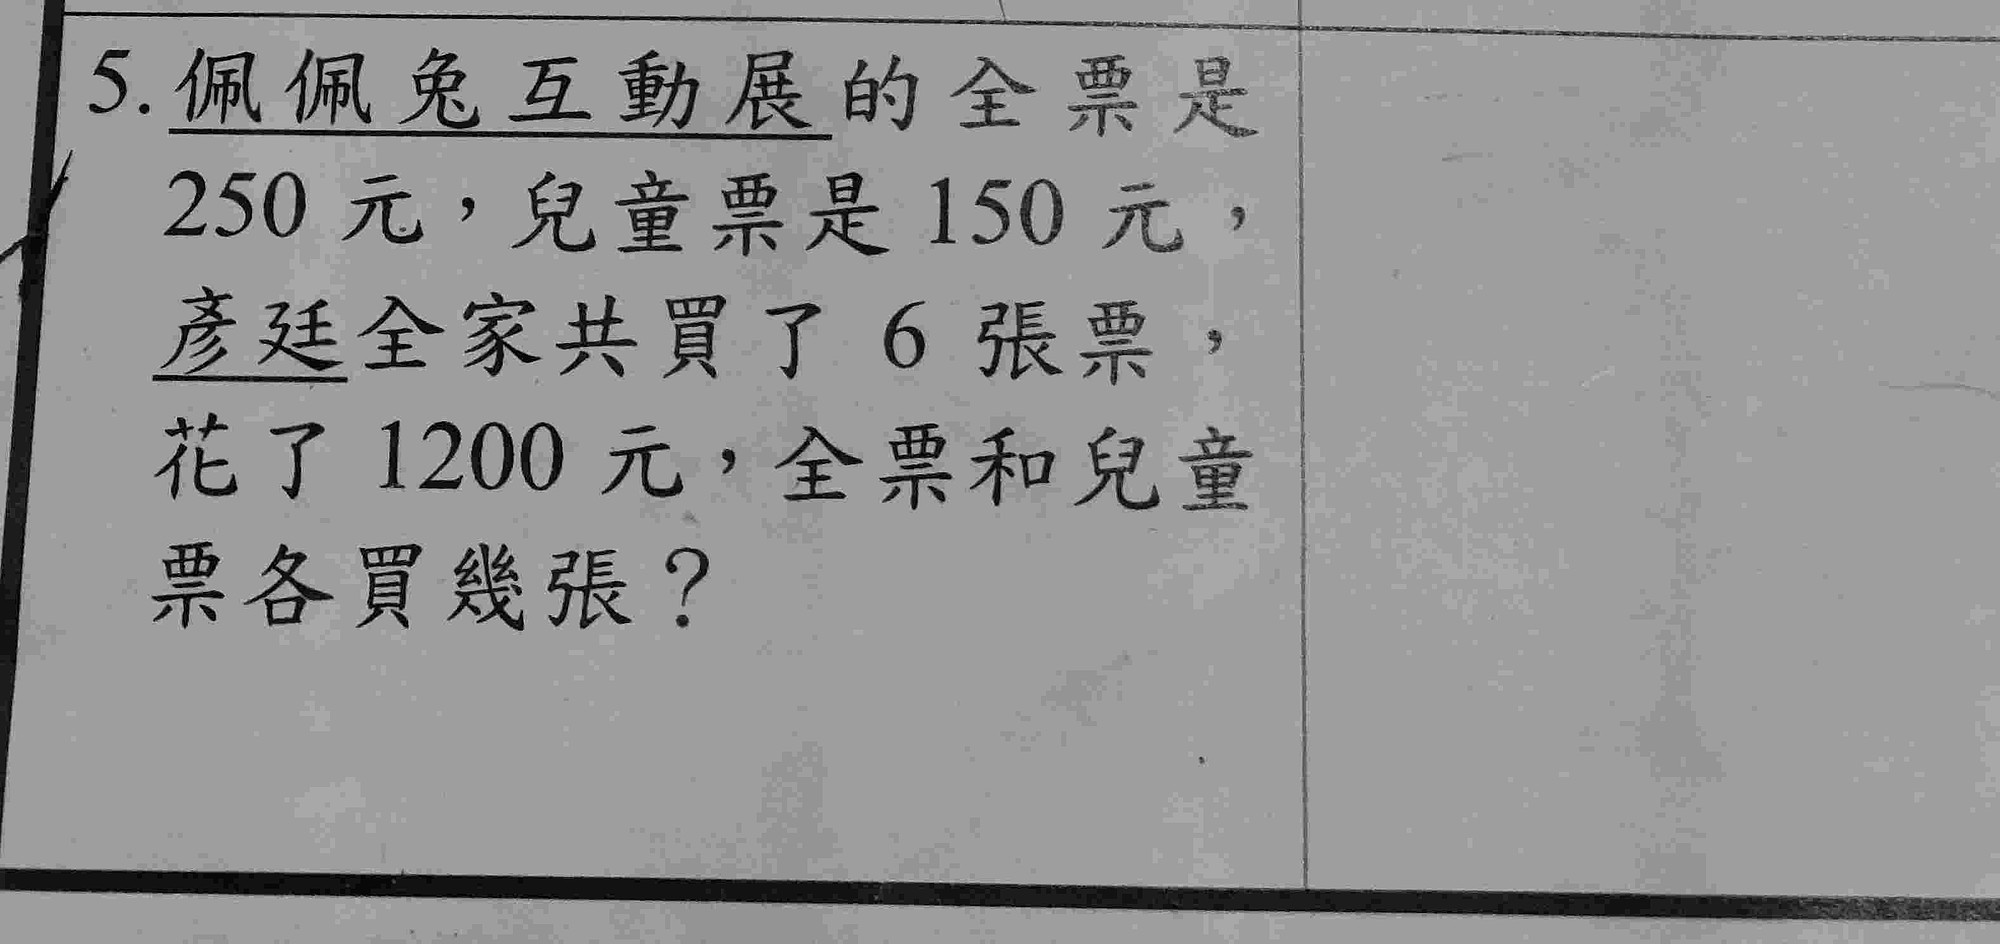 5. 佩佩兔互動展的全票是
250 元，兒童票是 150 元，
彥廷全家共買了 6 張票，
花了 1200 元，全票和兒童
票各買幾張？